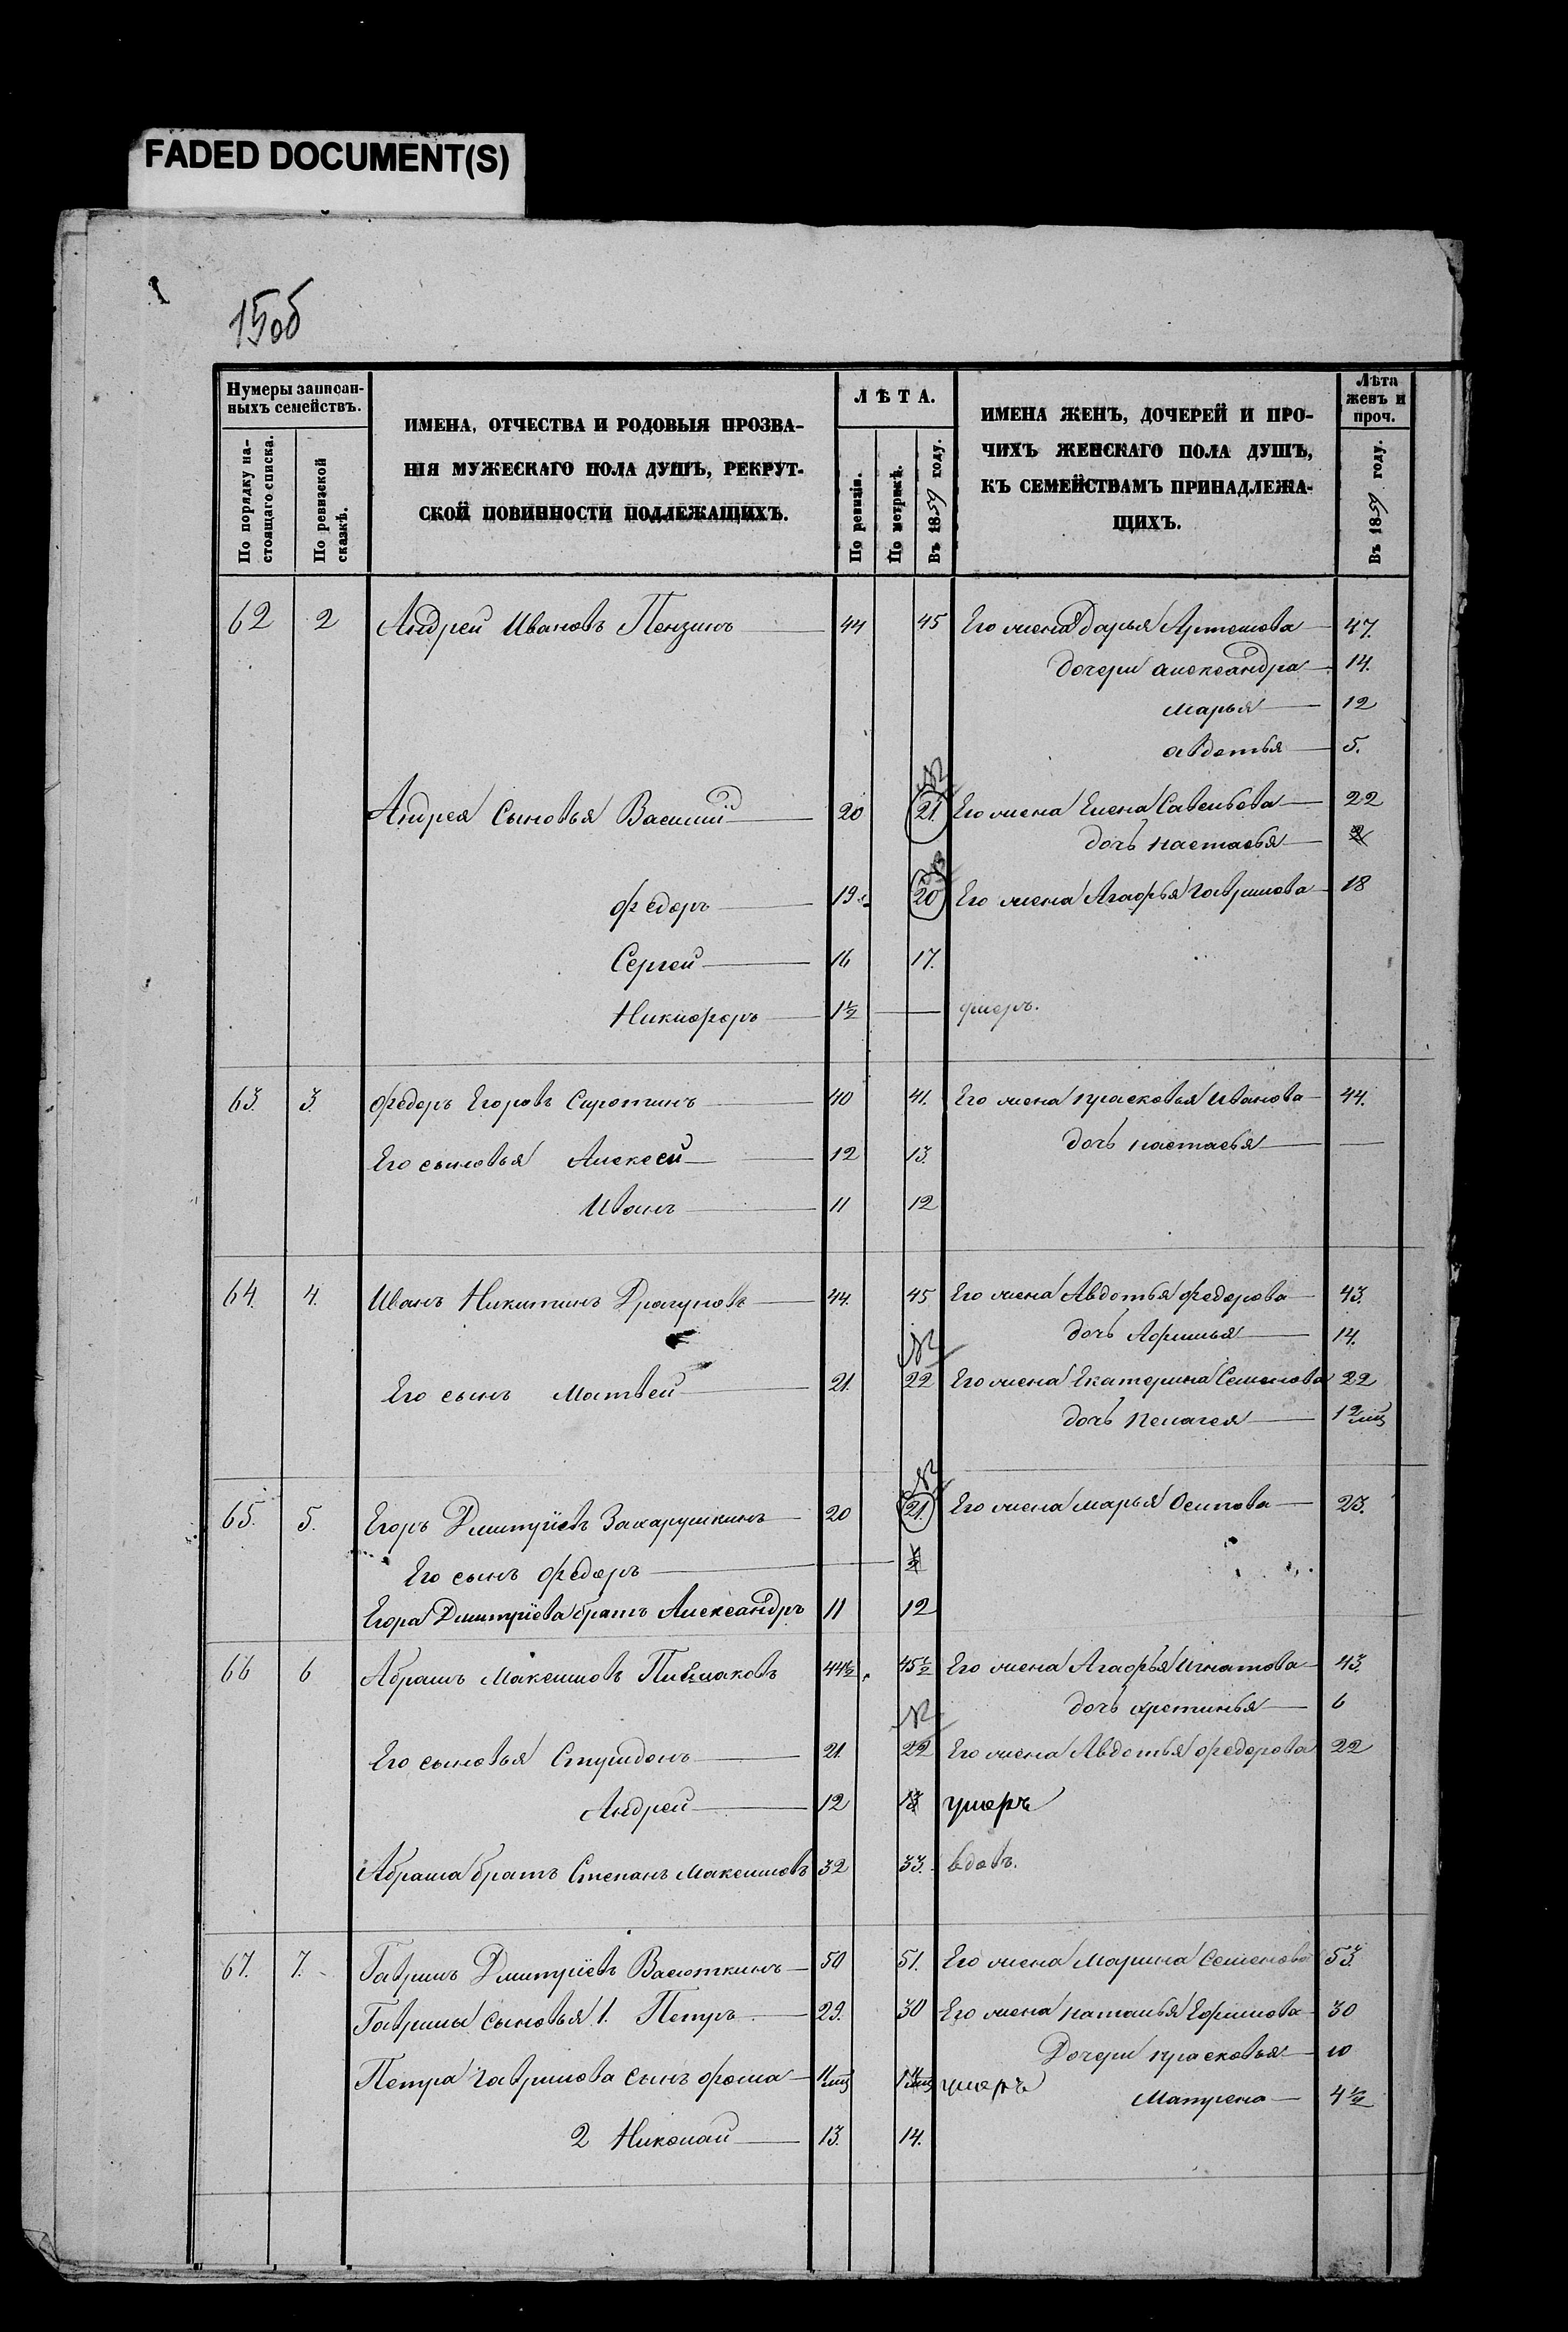 FADED DOCUMENT(S)
15об
Нумеры записан-
ныхъ семействъ.
По порядку на-
стоящаго списка.
По ревизской
сказкѣ.
ИМЕНА, ОТЧЕСТВА И РОДОВЫЯ ПРОЗВА-
НІЯ МУЖЕСКАГО ПОЛА ДУШЪ, РЕКРУТ-
СКОЙ ПОВИННОСТИ ПОДЛЕЖАЩИХЪ.
ЛѢТА.
По ревизіи.
По метрикѣ.
Въ 1859 году.
ИМЕНА ЖЕНЪ, ДОЧЕРЕЙ И ПРО-
ЧИХЪ ЖЕНСКАГО ПОЛА ДУШЪ,
КЪ СЕМЕЙСТВАМЪ ПРИНАДЛЕЖА-
ЩИХЪ.
Лѣта
женъ и
проч.
Въ 1859 году.
62 2 Андрей Ивановъ Пензинъ 44 45 Его жена Дарья Артемова 47.
дочери александра 14.
марья 12
авдотья 5.
Андрея Сыновья Василий 20 21. Его жена Елена Савельева 22
дочь настасья
федоръ 19 20 Его жена Агафья Гаврилова 18
Сергей 16 17.
Никифоръ 1½ умеръ.
63. 3. федоръ Егоровъ Сиротинъ 40 41. Его жена прасковья Иванова 44.
дочь настасья
Его сыновья Алексей 12 13.
Иванъ 11 12
64. 4. Иванъ Никитинъ Драгуновъ 44. 45 Его жена Авдотья федорова 43.
дочь Афимья 14.
Его сынъ Матвей 21. 22 Его жена Екатерина Семенова 22
дочь Пелагея
65. 5. Егоръ Дмитріевъ Захарушкинъ 20 21. Его жена марья Осипова 23.
Его сынъ федоръ ½
Егора Дмитріева братъ Александръ 11 12
66 6 Абрамъ Максимовъ 44½ 45½ Его жена Агафья Игнатова 43.
дочь хрстинья 6
Его сыновья Спиридонъ 21. 22 Его жена Авдотья федорова 22
Андрей 12 13 умеръ
Абрама братъ Степанъ Максимовъ 32 33. вдовъ.
67. 7. Гаврилъ Дмитріевъ Васюткинъ 50 51. Его жена Марина Семенова 53.
Гаврилы Сыновья 1. Петръ 29. 30 Его жена наталья Ефимова 30
Дочери прасковья 10
Петра Гаврилова сынъ фома умеръ
Матрена 4½
2 Николай 13. 14.